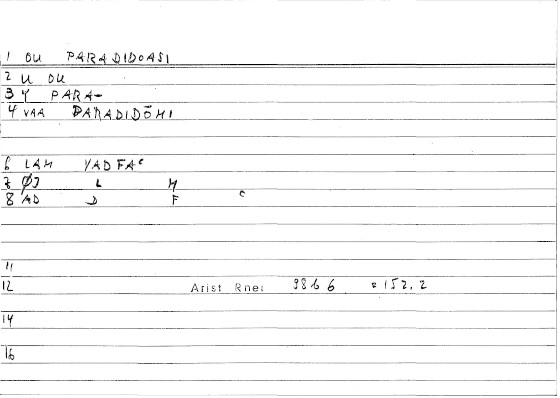 1 OU PARADIDOASI
2 U OU
3 Y PARA-
4 VAA PARADIDŌMI
6 LAM YADFAʿ
7 ØJ L M
8 AD D F ʿ
11
12 Arist Rhet 9866 =152,2
14
16